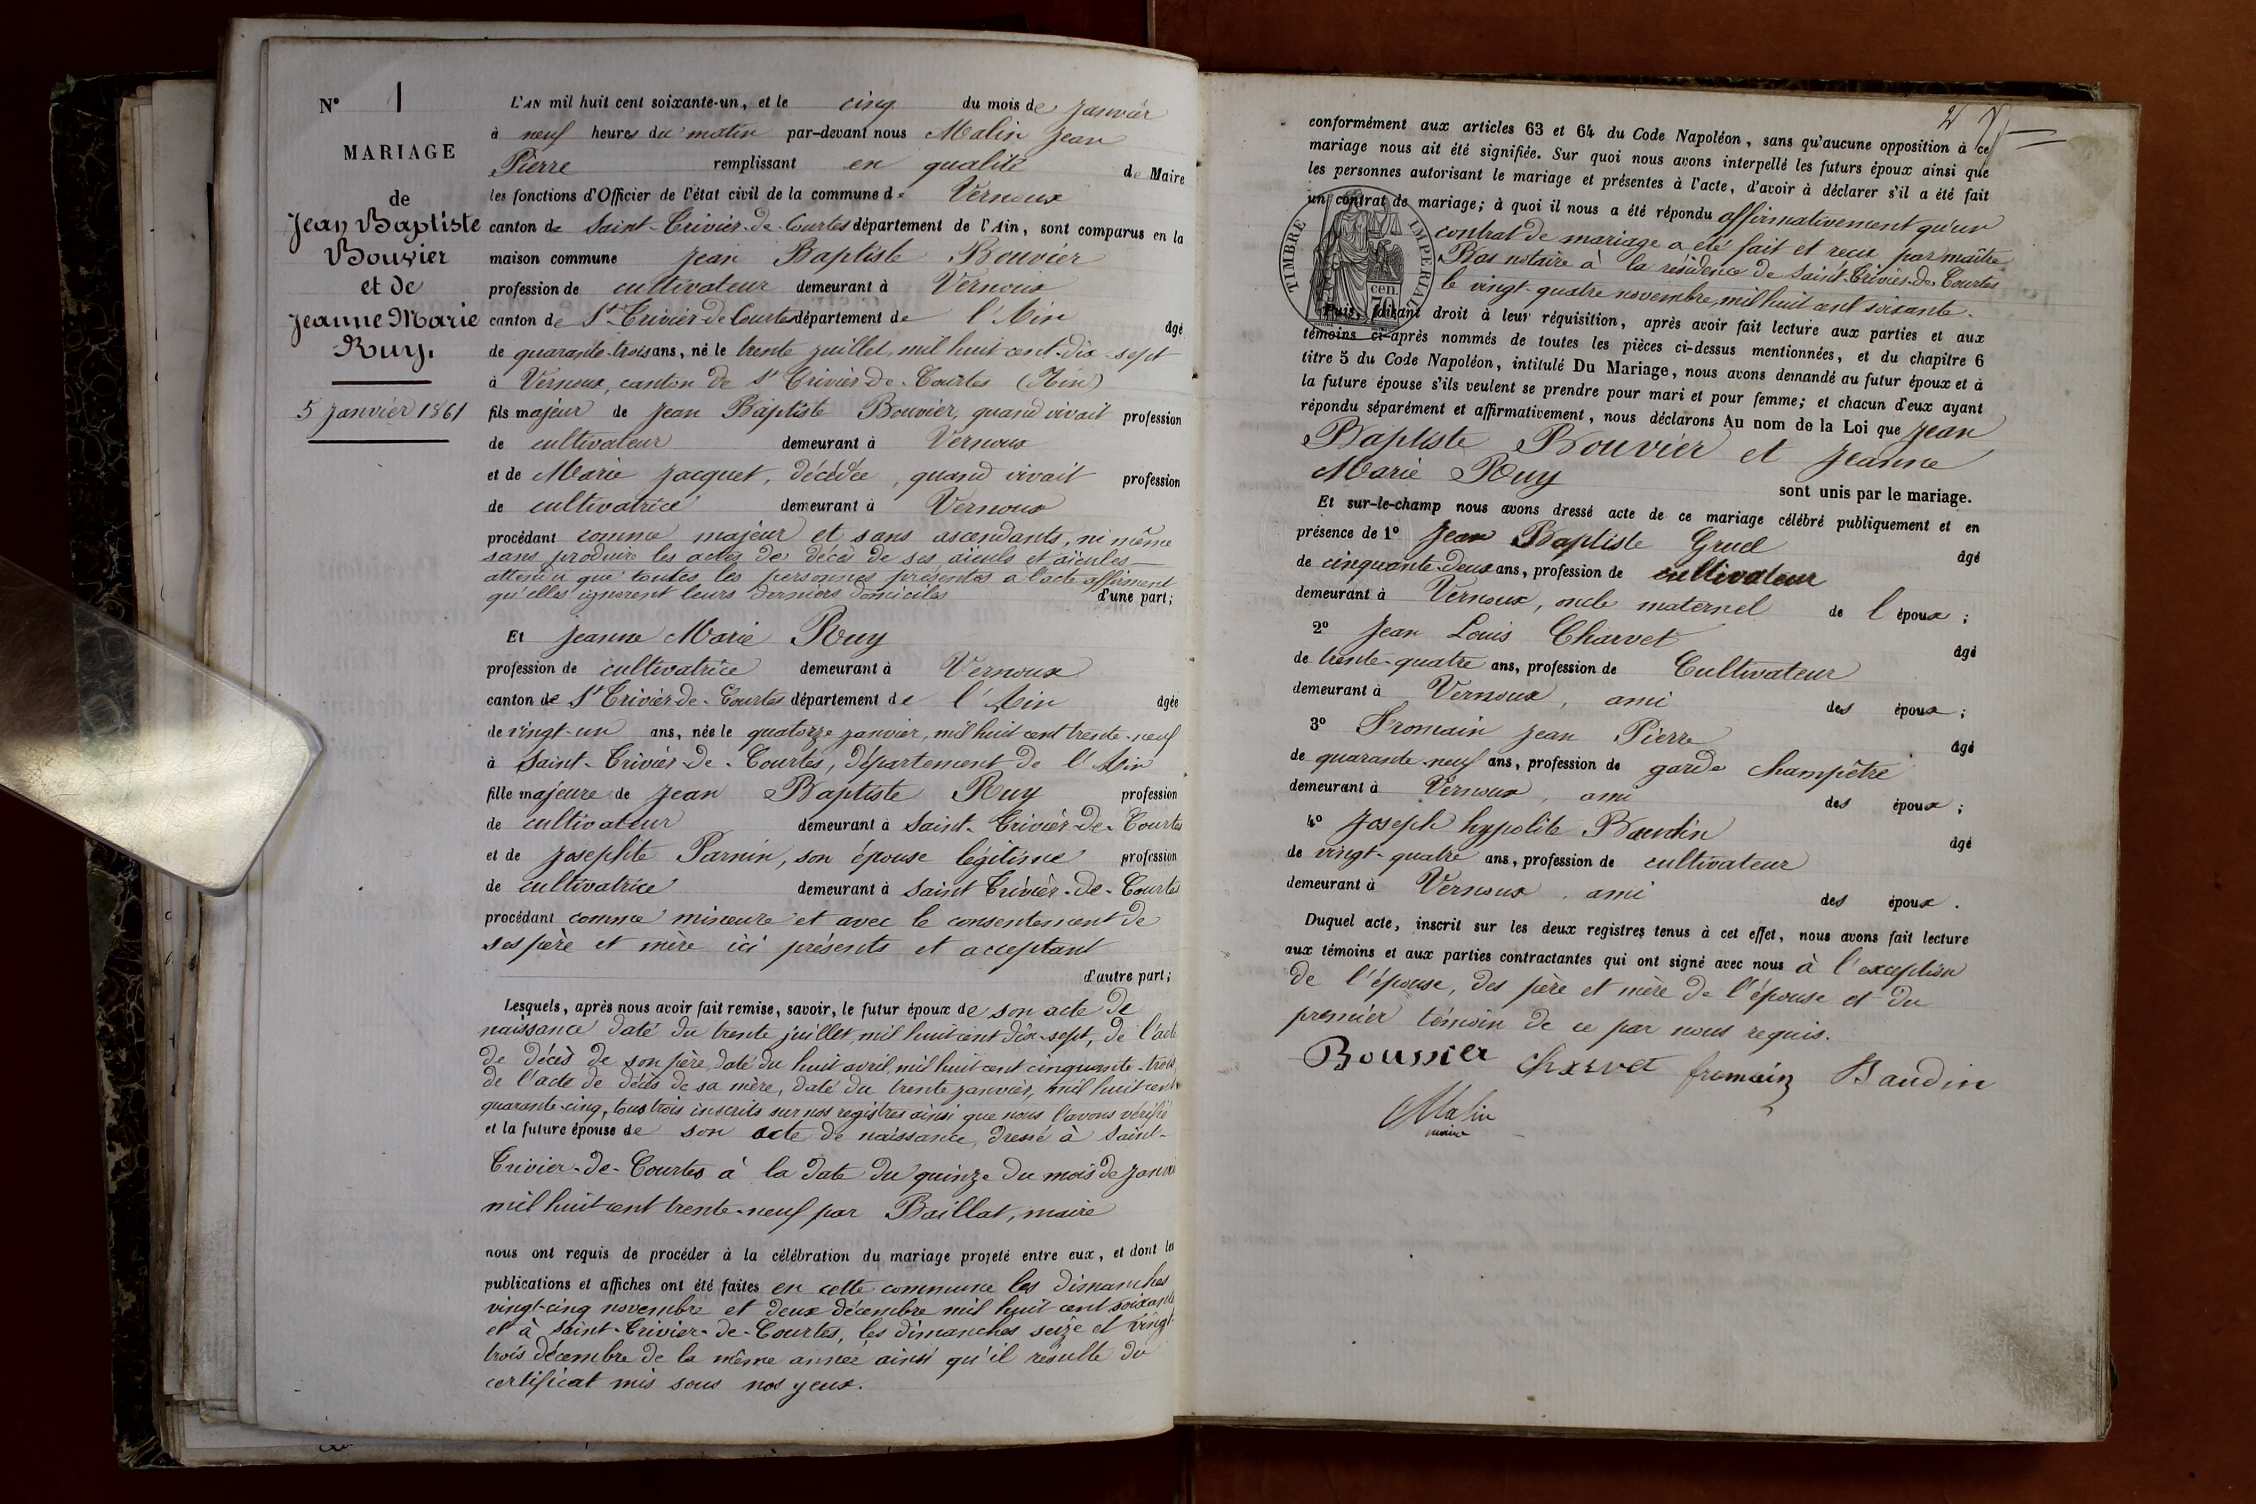 N° 1
MARIAGE
de
Jean Baptiste
Bouvier
et de
Jeanne Marie
Ruy.
5 janvier 1861
L'AN mil huit cent soixante-un, et le cinq du mois de janvier
à neuf heures du matin par-devant nous Malin Jean
Pierre remplissant en qualité de Maire
les fonctions d'Officier de l'état civil de la commune de Vernoux
canton de Saint-Trivier-de-Courtes département de l'Ain, sont comparus en la
maison commune Jean Baptiste Bouvier
profession de cultivateur demeurant à Vernoux
canton de St Trivier de Courtes département de l'Ain âgé
de quarante-trois ans, né le trente juillet, mil huit cent dix-sept
à Vernoux, canton de St Trivier-de-Courtes (Ain)
fils majeur de Jean Baptiste Bouvier, quand vivait profession
de cultivateur demeurant à Vernoux
et de Marie Jacquet, décédée, quand vivait profession
de cultivatrice demeurant à Vernoux
procédant comme majeur et sans ascendants, ni même
sans produire les actes de décès de ses aïeuls et aïeules
attendu que toutes les personnes présentes à l'acte affirment
qu'elles ignorent leurs derniers domiciles d'une part;
Et Jeanne Marie Ruy
profession de cultivatrice demeurant à Vernoux
canton de St Trivier-de-Courtes département de l'Ain âgée
de vingt-un ans, née le quatorze janvier, mil huit cent trente-neuf
à Saint-Trivier-de-Courtes, département de l'Ain
fille majeure de Jean Baptiste Ruy profession
de cultivateur demeurant à Saint-Trivier-de-Courtes
et de Josephte Parnin, son épouse légitime profession
de cultivatrice demeurant à Saint Trivier-de-Courtes
procédant comme mineure et avec le consentement de
ses père et mère ici présents et acceptant
d'autre part;
Lesquels, après nous avoir fait remise, savoir, le futur époux de son acte de
naissance daté du trente juillet, mil huit cent dix-sept, de l'acte
de décès de son père, daté du huit avril, mil huit cent cinquante-trois,
de l'acte de décès de sa mère, daté du trente janvier, mil huit cent
quarante-cinq, tous trois inscrits sur nos registres ainsi que nous l'avons vérifié
et la future épouse de son acte de naissance, dressé à Saint-
Trivier-de-Courtes à la date du quinze du mois de janvier
mil huit cent trente-neuf par Baillat, maire
nous ont requis de procéder à la célébration du mariage projeté entre eux, et dont les
publications et affiches ont été faites en cette commune les dimanches
vingt-cinq novembre et deux décembre mil huit cent soixante
et à Saint-Trivier-de-Courtes, les dimanches seize et vingt-
trois décembre de la même année ainsi qu'il résulte du
certificat mis sous nos yeux.
2
conformément aux articles 63 et 64 du Code Napoléon, sans qu'aucune opposition à ce
mariage nous ait été signifiée. Sur quoi nous avons interpellé les futurs époux ainsi que
les personnes autorisant le mariage et présentes à l'acte, d'avoir à déclarer s'il a été fait
un contrat de mariage; à quoi il nous a été répondu affirmativement qu'un
contrat de mariage a été fait et reçu par maître
Bas notaire à la résidence de Saint-Trivier-de-Courtes
le vingt-quatre novembre, mil huit cent soixante.
TIMBRE IMPÉRIAL
70 cen.
Puis, faisant droit à leur réquisition, après avoir fait lecture aux parties et aux
témoins ci-après nommés de toutes les pièces ci-dessus mentionnées, et du chapitre 6
titre 5 du Code Napoléon, intitulé Du Mariage, nous avons demandé au futur époux et à
la future épouse s'ils veulent se prendre pour mari et pour femme; et chacun d'eux ayant
répondu séparément et affirmativement, nous déclarons Au nom de la Loi que Jean
Baptiste Bouvier et Jeanne
Marie Ruy sont unis par le mariage.
Et sur-le-champ nous avons dressé acte de ce mariage célébré publiquement et en
présence de 1° Jean Baptiste Gruel âgé
de cinquante-deux ans, profession de cultivateur
demeurant à Vernoux, oncle maternel de l'époux;
2° Jean Louis Charvet âgé
de trente-quatre ans, profession de Cultivateur
demeurant à Vernoux, ami des époux;
3° Fromain Jean Pierre âgé
de quarante-neuf ans, profession de garde champêtre
demeurant à Vernoux, ami des époux;
4° Joseph hypolite Baudin âgé
de vingt-quatre ans, profession de cultivateur
demeurant à Vernoux, ami des époux.
Duquel acte, inscrit sur les deux registres tenus à cet effet, nous avons fait lecture
aux témoins et aux parties contractantes qui ont signé avec nous à l'exception
de l'épouse, des père et mère de l'épouse et du
premier témoin de ce par nous requis.
Bouvier Charvet fromain Baudin
Malin
maire